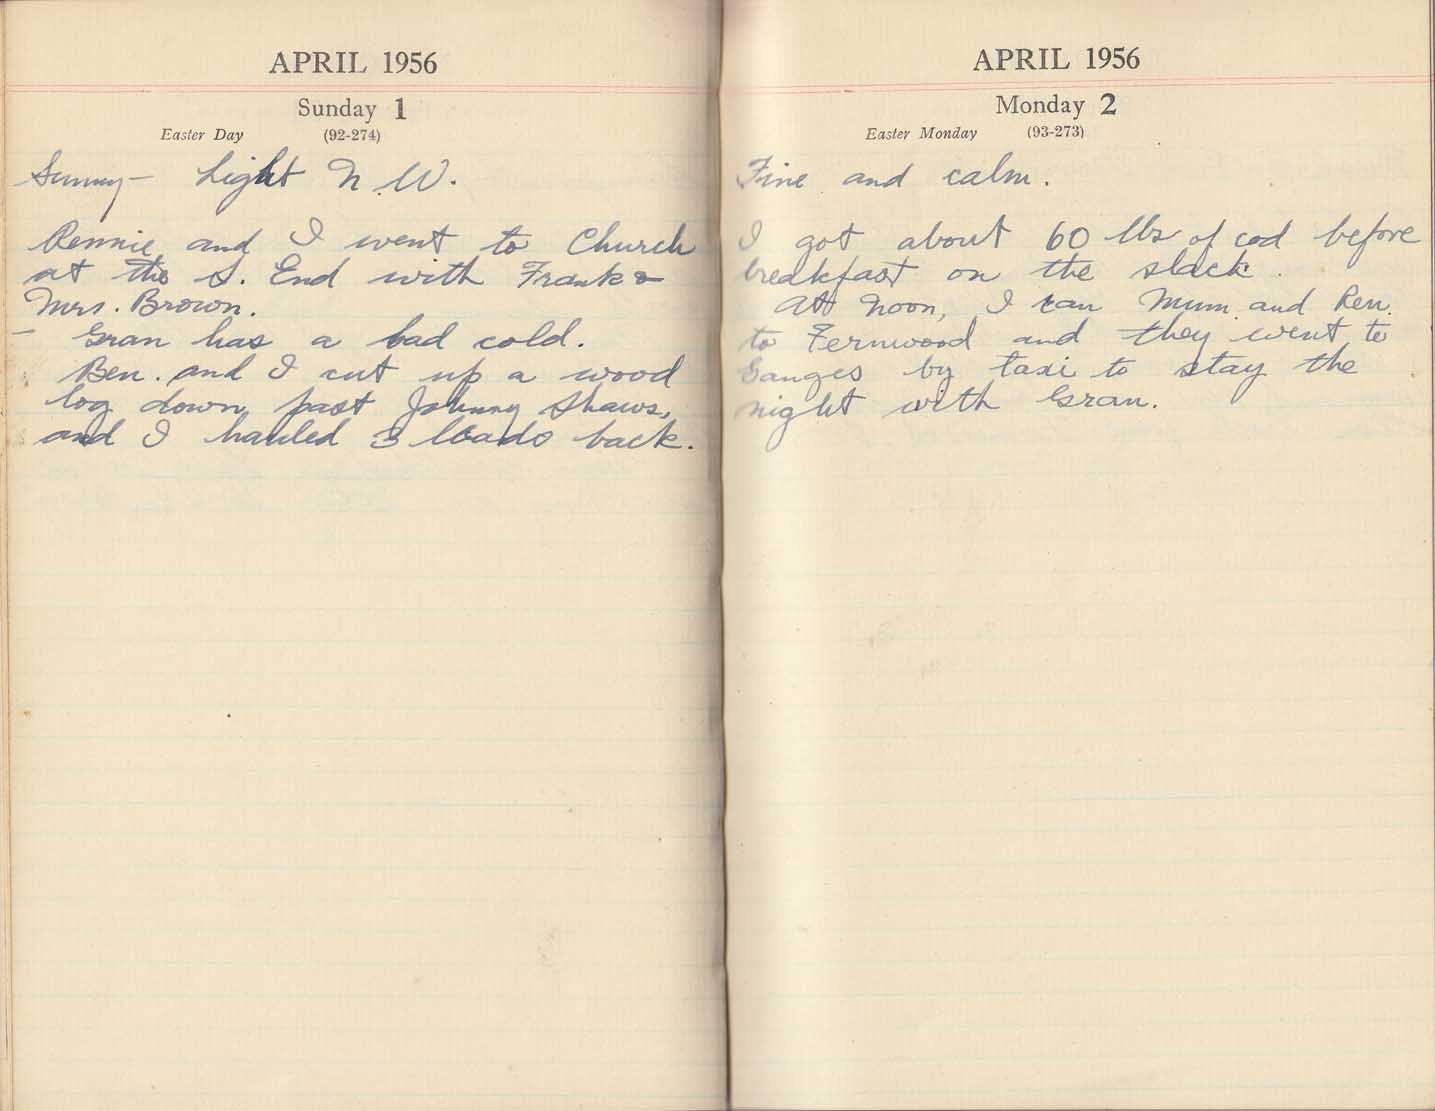 APRIL 1956
Sunday 1
Easter Day (92-274)
Sunny — Light N.W.
Rennie and I went to Church
at the S. End with Frank &
Mrs. Brown.
– Gran has a bad cold.
Ben. and I cut up a wood
log down past Johnny Shaws,
and I hauled 3 loads back.
APRIL 1956
Monday 2
Easter Monday (93-273)
Fine and calm.
I got about 60 lbs of cod before
breakfast on the slack.
At Noon, I ran Mum and Ren.
to Fernwood and they went to
Ganges by taxi to stay the
night with Gran.